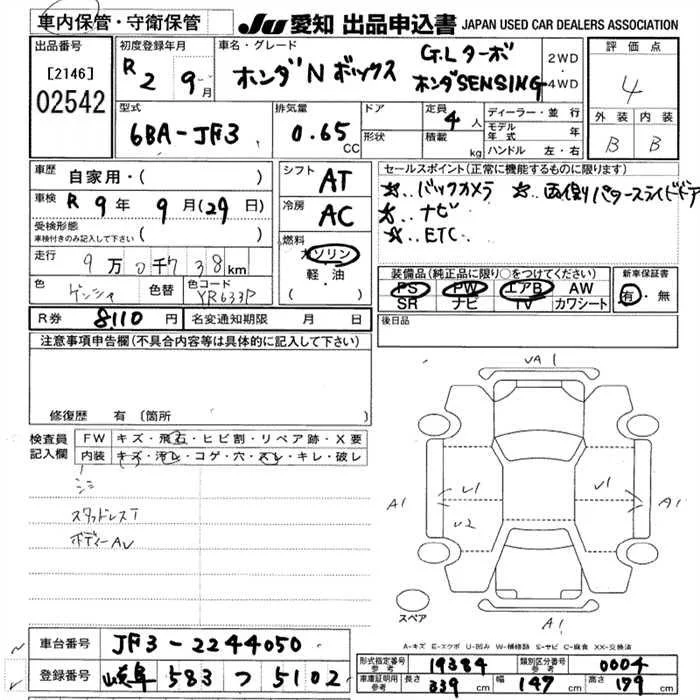 車内保管・守衛保管
JU 愛知 出品申込書 JAPAN USED CAR DEALERS ASSOCIATION
出品番号
[2146]
02542
初度登録年月
R 2 9 月
車名・グレード
ホンダ N ボックス
G.L ターボ
ホンダSENSING
2WD
・
4WD
評価点
4
外装 内装
B B
型式
6BA-JF3
排気量
0.65 CC
ドア
形状
定員
4 人
積載
kg
ディーラー・並行
モデル年式 年
ハンドル 左・右
車歴 自家用・( )
車検 R 9 年 9 月(29 日)
受検形態
車検付きのみ記入して下さい ( )
走行 9 万 0 千 738 km
色 色替 色コード
YR633P
シフト AT
冷房 AC
燃料
ガソリン
軽・油
( )
セールスポイント(正常に機能するものに限ります)
☆..バックカメラ ☆..両側パワースライドドア
☆..ナビ
☆..ETC.
装備品(純正品に限り○をつけてください)
PS PW エアB AW
SR ナビ TV カワシート
新車保証書
有・無
R券 8110 円 名変通知期限 月 日
後日品
注意事項申告欄(不具合内容等は具体的に記入して下さい)
修復歴 有 〔箇所
検査員記入欄
FW キズ・飛石・ヒビ割・リペア跡・X要
内装 キズ・汚レ・コゲ・穴・スレ・キレ・破レ
スタッドレスT
VA1
A1 U1 U1 A1
U2
スペア
A1
A-キズ E-エクボ U-凹み W-補修跡 S-サビ C-腐食 XX-交換済
車台番号 JF3-2244050
登録番号 岐阜 583 つ 5102
形式指定番号 参考 19384 類別区分番号 参考 0004 高さ
車庫証明用 参考 長さ 339 cm 幅 147 cm 179 cm